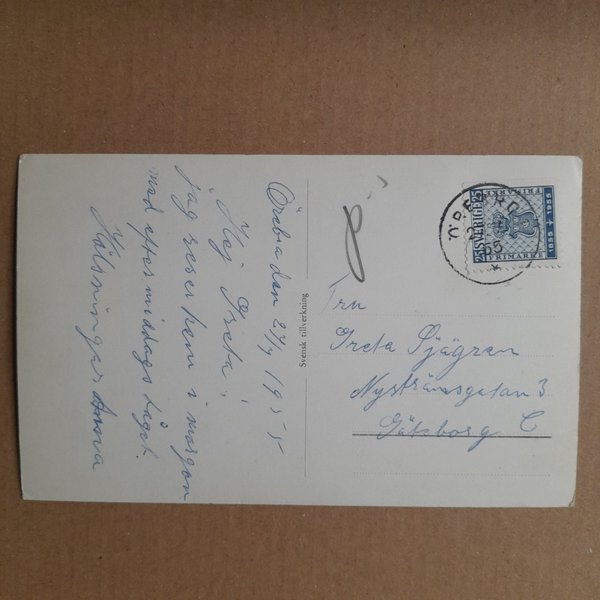 Örebro den 24/7 1955
Hej Greta!
jag reser hem i morgon
med eftermiddags tåget.
Hälsningar
Svensk tillverkning
Fru
Greta Sjögren
Nysträmsgatan 3
Göteborg C
ÖREBRO
55
25 SVERIGE 25
FRIMÄRKE
FRIMÄRKE
1855 1955